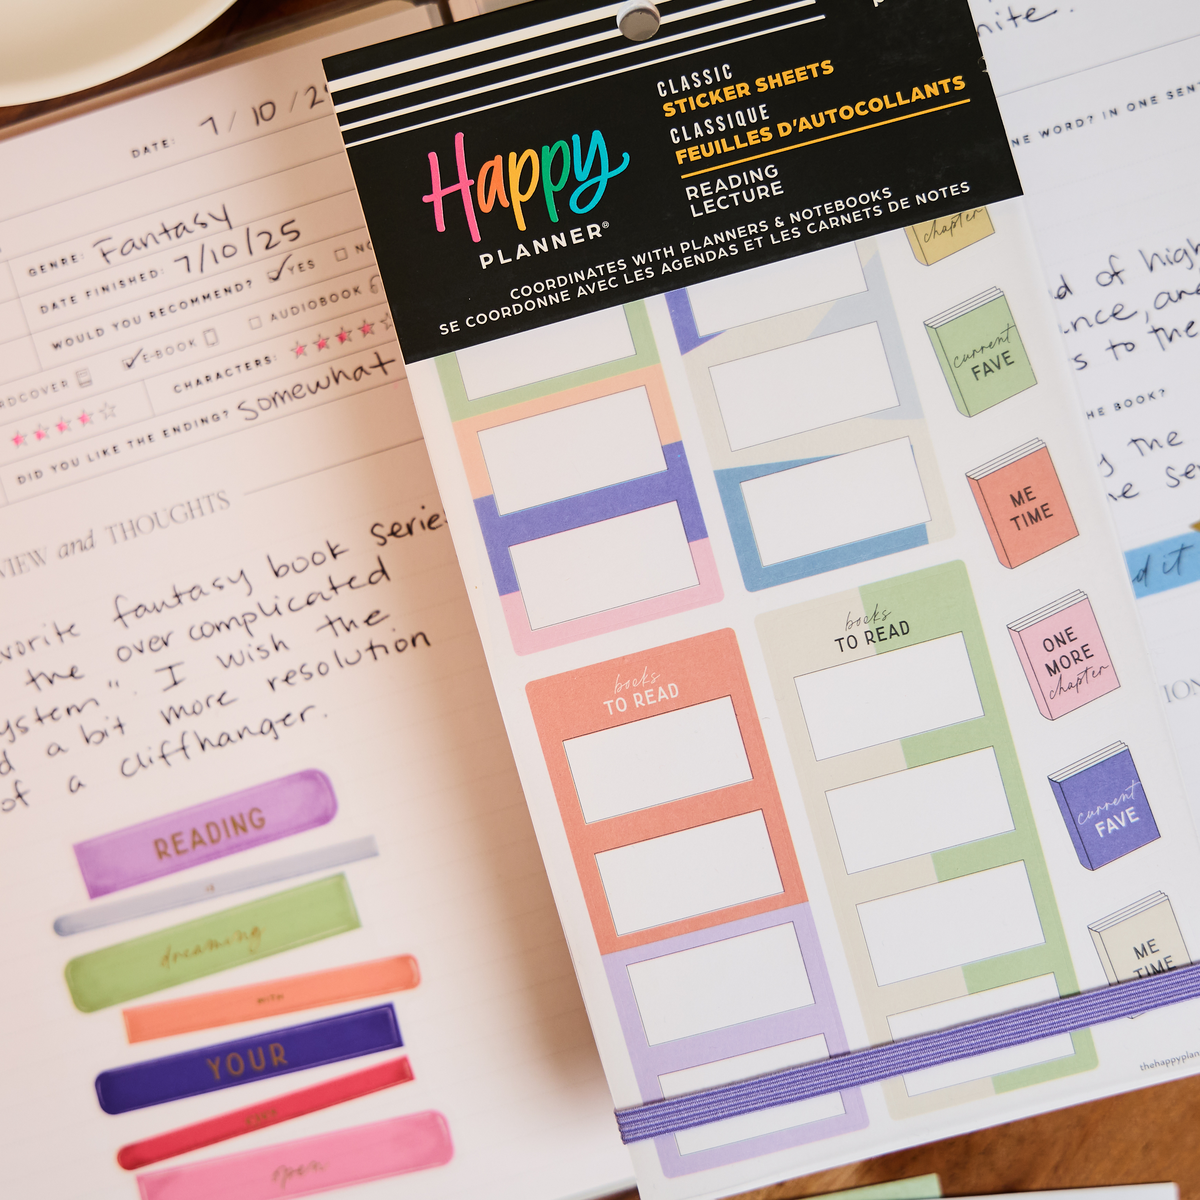 DATE: 7/10/2
GENRE: Fantasy
DATE FINISHED: 7/10/25
WOULD YOU RECOMMEND? YES
E-BOOK AUDIOBOOK
CHARACTERS:
DID YOU LIKE THE ENDING? Somewhat
and THOUGHTS
fantasy book
the over complicated
". I wish the
a bit more resolution
of a cliffhanger.
READING
is
dreaming
with
YOUR
eyes
open
CLASSIC
STICKER SHEETS
CLASSIQUE
FEUILLES D'AUTOCOLLANTS
READING
LECTURE
Happy
PLANNER®
COORDINATES WITH PLANNERS & NOTEBOOKS
SE COORDONNE AVEC LES AGENDAS ET LES CARNETS DE NOTES
books
TO READ
books
TO READ
chapter
current
FAVE
ME
TIME
ONE
MORE
chapter
current
FAVE
ME
TIME
WORD? IN ONE
of
and
to the
BOOK?
the
it